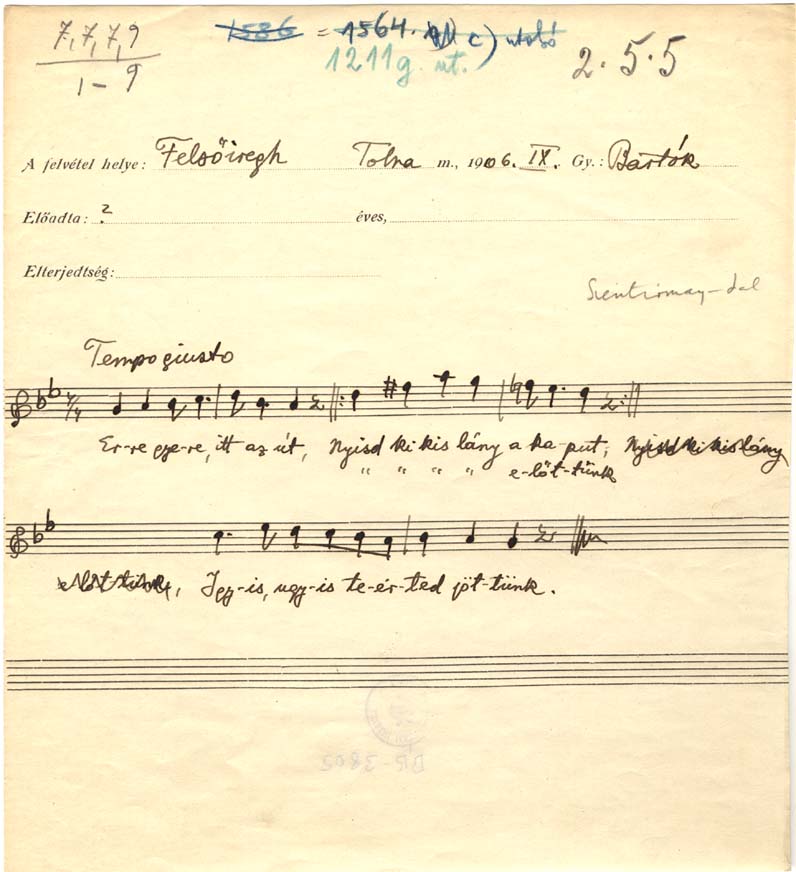 7, 7, 7, 9
1 – 9
1586 = 1564. c) utolsó
1211 g. ut.
2. 5. 5
A felvétel helye: Felsőiregh Tolna m., 1906. IX. Gy.: Bartók
Előadta: ? éves,
Elterjedtség:
Szentirmay-dal
Tempo giusto
Er-re gye-re, itt az út, Nyisd ki kis lány a ka-put, Nyisd ki kis lány
" " " " e-lőt-tünk
előttünk, Igy-is, ugy-is te-ér-ted jöt-tünk.
BR-3805